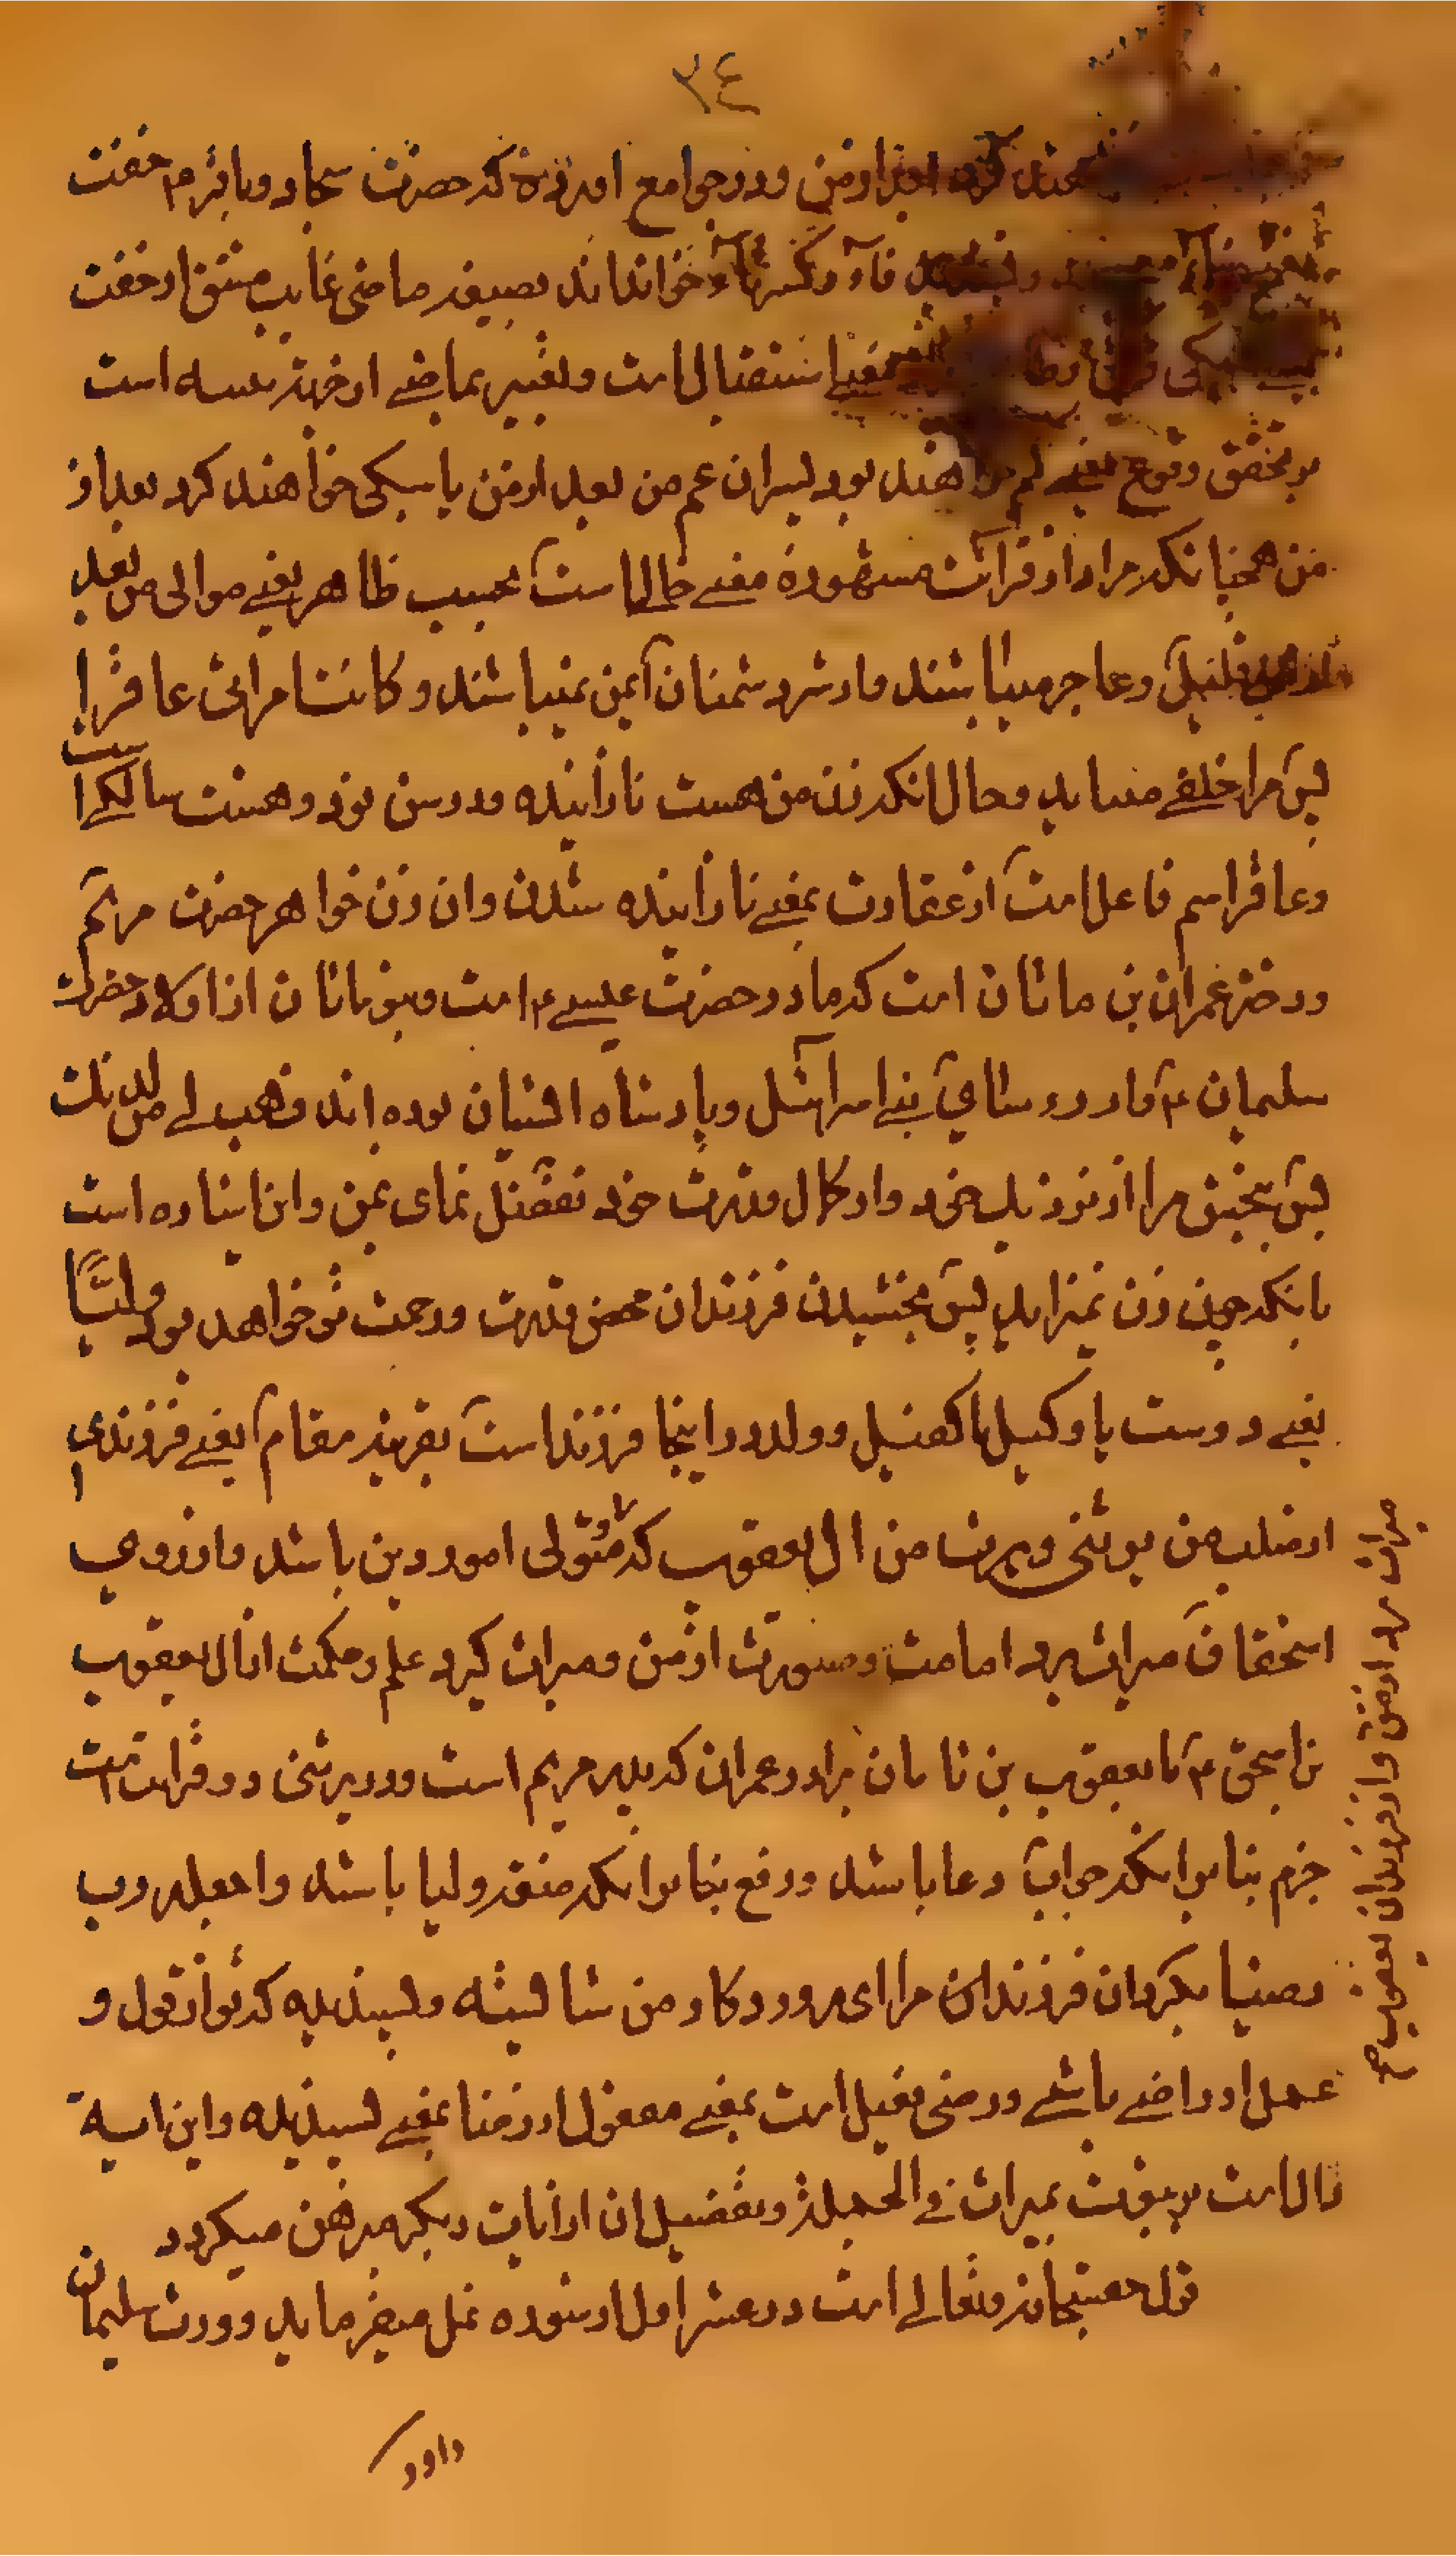 ٣٤
کرد بعد از من و در جوامع آورده که حضرت سجاد و باقر ۴ خفت
فاء و کسر تاء خوانده‌اند بصیغه ماضی غایب مشتق از خفت
استقبال است و تعبیر بماضی از جهة تنبیه است
بر تحقق وقوع یعنی کم خواهند بود پسران عم من بعد از من یا سبکی خواهند کرد بعد از
من همچنانکه مراد از قرائت مشهوره معنی حال است بحسب ظاهر یعنی موالی من بعد
از من قلیل و عاجر میباشند و از شر دشمنان ایمن نمیباشند و کانت امراتی عاقرا
پس مرا خلفی میباید و حال آنکه زن من هست نازاینده و در سن نود و هشت سالگی است
و عاقر اسم فاعل است از عقارت بمعنی نازاینده شدن و ان زن خواهر حضرت مریم
و دختر عمران بن ماثان است که مادر حضرت عیسی ۴ است و بنو ماثان از اولاد حضرت
سلیمان ۴ و از رؤسای بنی اسرائیل و پادشاه ایشان بوده‌اند فهب لی من لدنک
پس ببخش مرا از نزدیک خود و از کمال قدرت خود تفضل نمای بمن و این اشاره است
بانکه چون زن نمیزاید پس بخشیدن فرزندان محض قدرت و رحمت تو خواهد بود ولیا
یعنی دوست یا وکیل یا کفیل و ولد در اینجا فرزند است بقرینه مقام یعنی فرزندی
از صلب من یرثنی و یرث من ال یعقوب که متولی امور دین باشد و از روی
استحقاق میراث برد امامت و حبورت از من و میراث گیرد علم و حکمت از ال یعقوب
بن اسحق ۴ یا یعقوب بن ماثان برادر عمران که پدر مریم است و در یرثنی دو قرائت است
جزم بنا بر انکه جواب دعا باشد و رفع بنا بر انکه صفة ولیا باشد و اجعله رب
رضیا بگردان فرزندان مرا ای پروردگار من شایسته و پسندیده که تو از قول و
عمل او راضی باشی و رضی فعیل است بمعنی مفعول از رضا بمعنی پسندیده و این آیه
دال است بر ثبوت میراث فی الجمله و تفصیل ان از ایات دیگر مبرهن میگردد
قول حقسبحانه و تعالی است در عشر اول از سوره نمل میفرماید و ورث سلیمان
داود
میراث برد از من و از فرزندان یعقوب صح